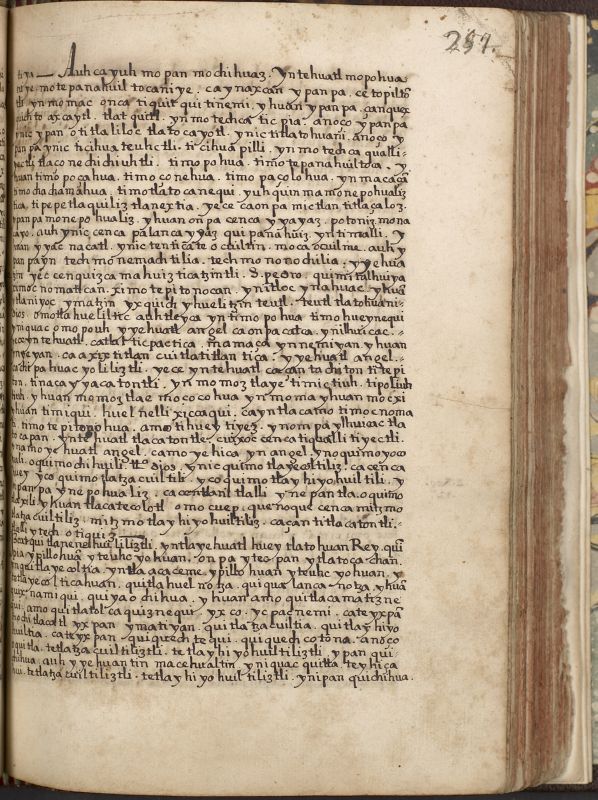 257.
Auh ca yuh mo pan mochihuaz. Yntehuatl mopohua
ye. motepanahuiltocani ye. caynaxcan y pan pa. ce topil
yn momac onca tiquitquitinemi, yhuan ypan pa. canquex
quichto axcaytl. tlatquitl. ynmotechca ticpia. anoço ypanpa
ynic ypan otitlaliloc tlatocayotl. ynic titlatohuani. anoço y
panpa ynic ticihuateuhctli. ticihuapilli. ynmotechca qualli
yectli tlaconechichiuhtli. timopohua. timotepanahuiltoca. y
huan timopocahua. timoconehua. timopaçolohua. ynmacaçã
timochachamahua. timotlatocanequi. yuhquinma monepohualiz
tica. tipepetlaquiliztlanextia. yece caonpa mictlan titlaçaloz
ypanpa monepohualiz. yhuan onpa cenca yyayaz. potoniz mona
cayo. auh ynic cenca palanca yyaz quipanahuiz. yntimalli. y
huan yyac nacatl. ynic tentica te ocuiltin. moca ocuilme. auh y
panpa yn techmonemachtilia. techmononochilia. yyehua
tzin yecenquizcamahuizticatzintli. S. pedro. quimitalhuiya
ximocnomatican. ximotepitonocan. ynitloc ynahuac. yhuã
tlaniyoc ymatzin yxquich yhuelitzin teutl. teutl tlatohuani
dios. omotlahueliltic auhtleyca yn timopohua timohueynequi
yniquac omopouh yyehuatl angel caonpa catca. ynilhuicac
yece yntehuatl. catlalticpactica. ynamaca ynnemiyan. yhuan
ynyeyan. ca axixtitlan cuitlatitlan tica. yyehuatl angel
catchipahuac yoliliztli. yece yntehuatl caçan tachiton titepi
ton. tinacayyacatontli. ynmomoztlaye timictiuh. tipoliuh
tiuh. yhuan momoztlae mococohua ynmoma yhuan mocxi
yhuan timiqui. huel nelli xiccaqui. cayntlacamo timocnoma
ti. timotepitonpohua. amo tihueytiyez. ynompa ylhuicac tla
tocapan. yntehuatl tlacatontle. cuixoc cenca tiqualli tiyectli.
ynamo yehuatl angel. camo yehica yn angel. ynoquimoyoco
huili. oquimochihuili tto dios. ynic quimotlayecoltiliz. cacenca
huey yc oquimotlatzacuiltili. yc oquimotlayhiyohuiltili. y
panpa ynepohualiz. cacentlani tlalli ynepantla. oquimo
tlaxili. yhuan tlacatecolotl omocuep. quenoque cenca mitzmo
tlatzacuiltiliz. mitzmotlayhiyohuiltiliz. caçan titlacatontli.
tlalli ytech otiquiz.
Yntlayehuatl huey tlatohuani Rey. qui
pia ypillohuan yteuhcyohuan. onpa ytecpan ytlatocachan.
inquitlayecoltia. yntla acaceme. ypillohuan yteuhcyohuan. y
tlayecolticahuan. quitlahuelnotza. quiqualancanotza yhuã
quixnamiqui. quiyaochihua. yhuan amo quitlacamatizne
qui. amo quitlatolcaquiznequi. yxco. ycpac nemi. cateyxpã
mochi tlacatl yxpan ymatiyan. quitlatzacuiltia. quitlayhiyo
huiltia. cateyxpan quiquechtequi. quiquechcotona. anoço
quitla. tetlatzacuiltiliztli. tetlayhiyohuiltiliztli. ypan qui
chihua. auh yyehuantin macehualtin yniquac quitta. teyhica
tetlatzacuiltiliztli. tetlayhiyohuiltiliztli. ynipan quichihua.